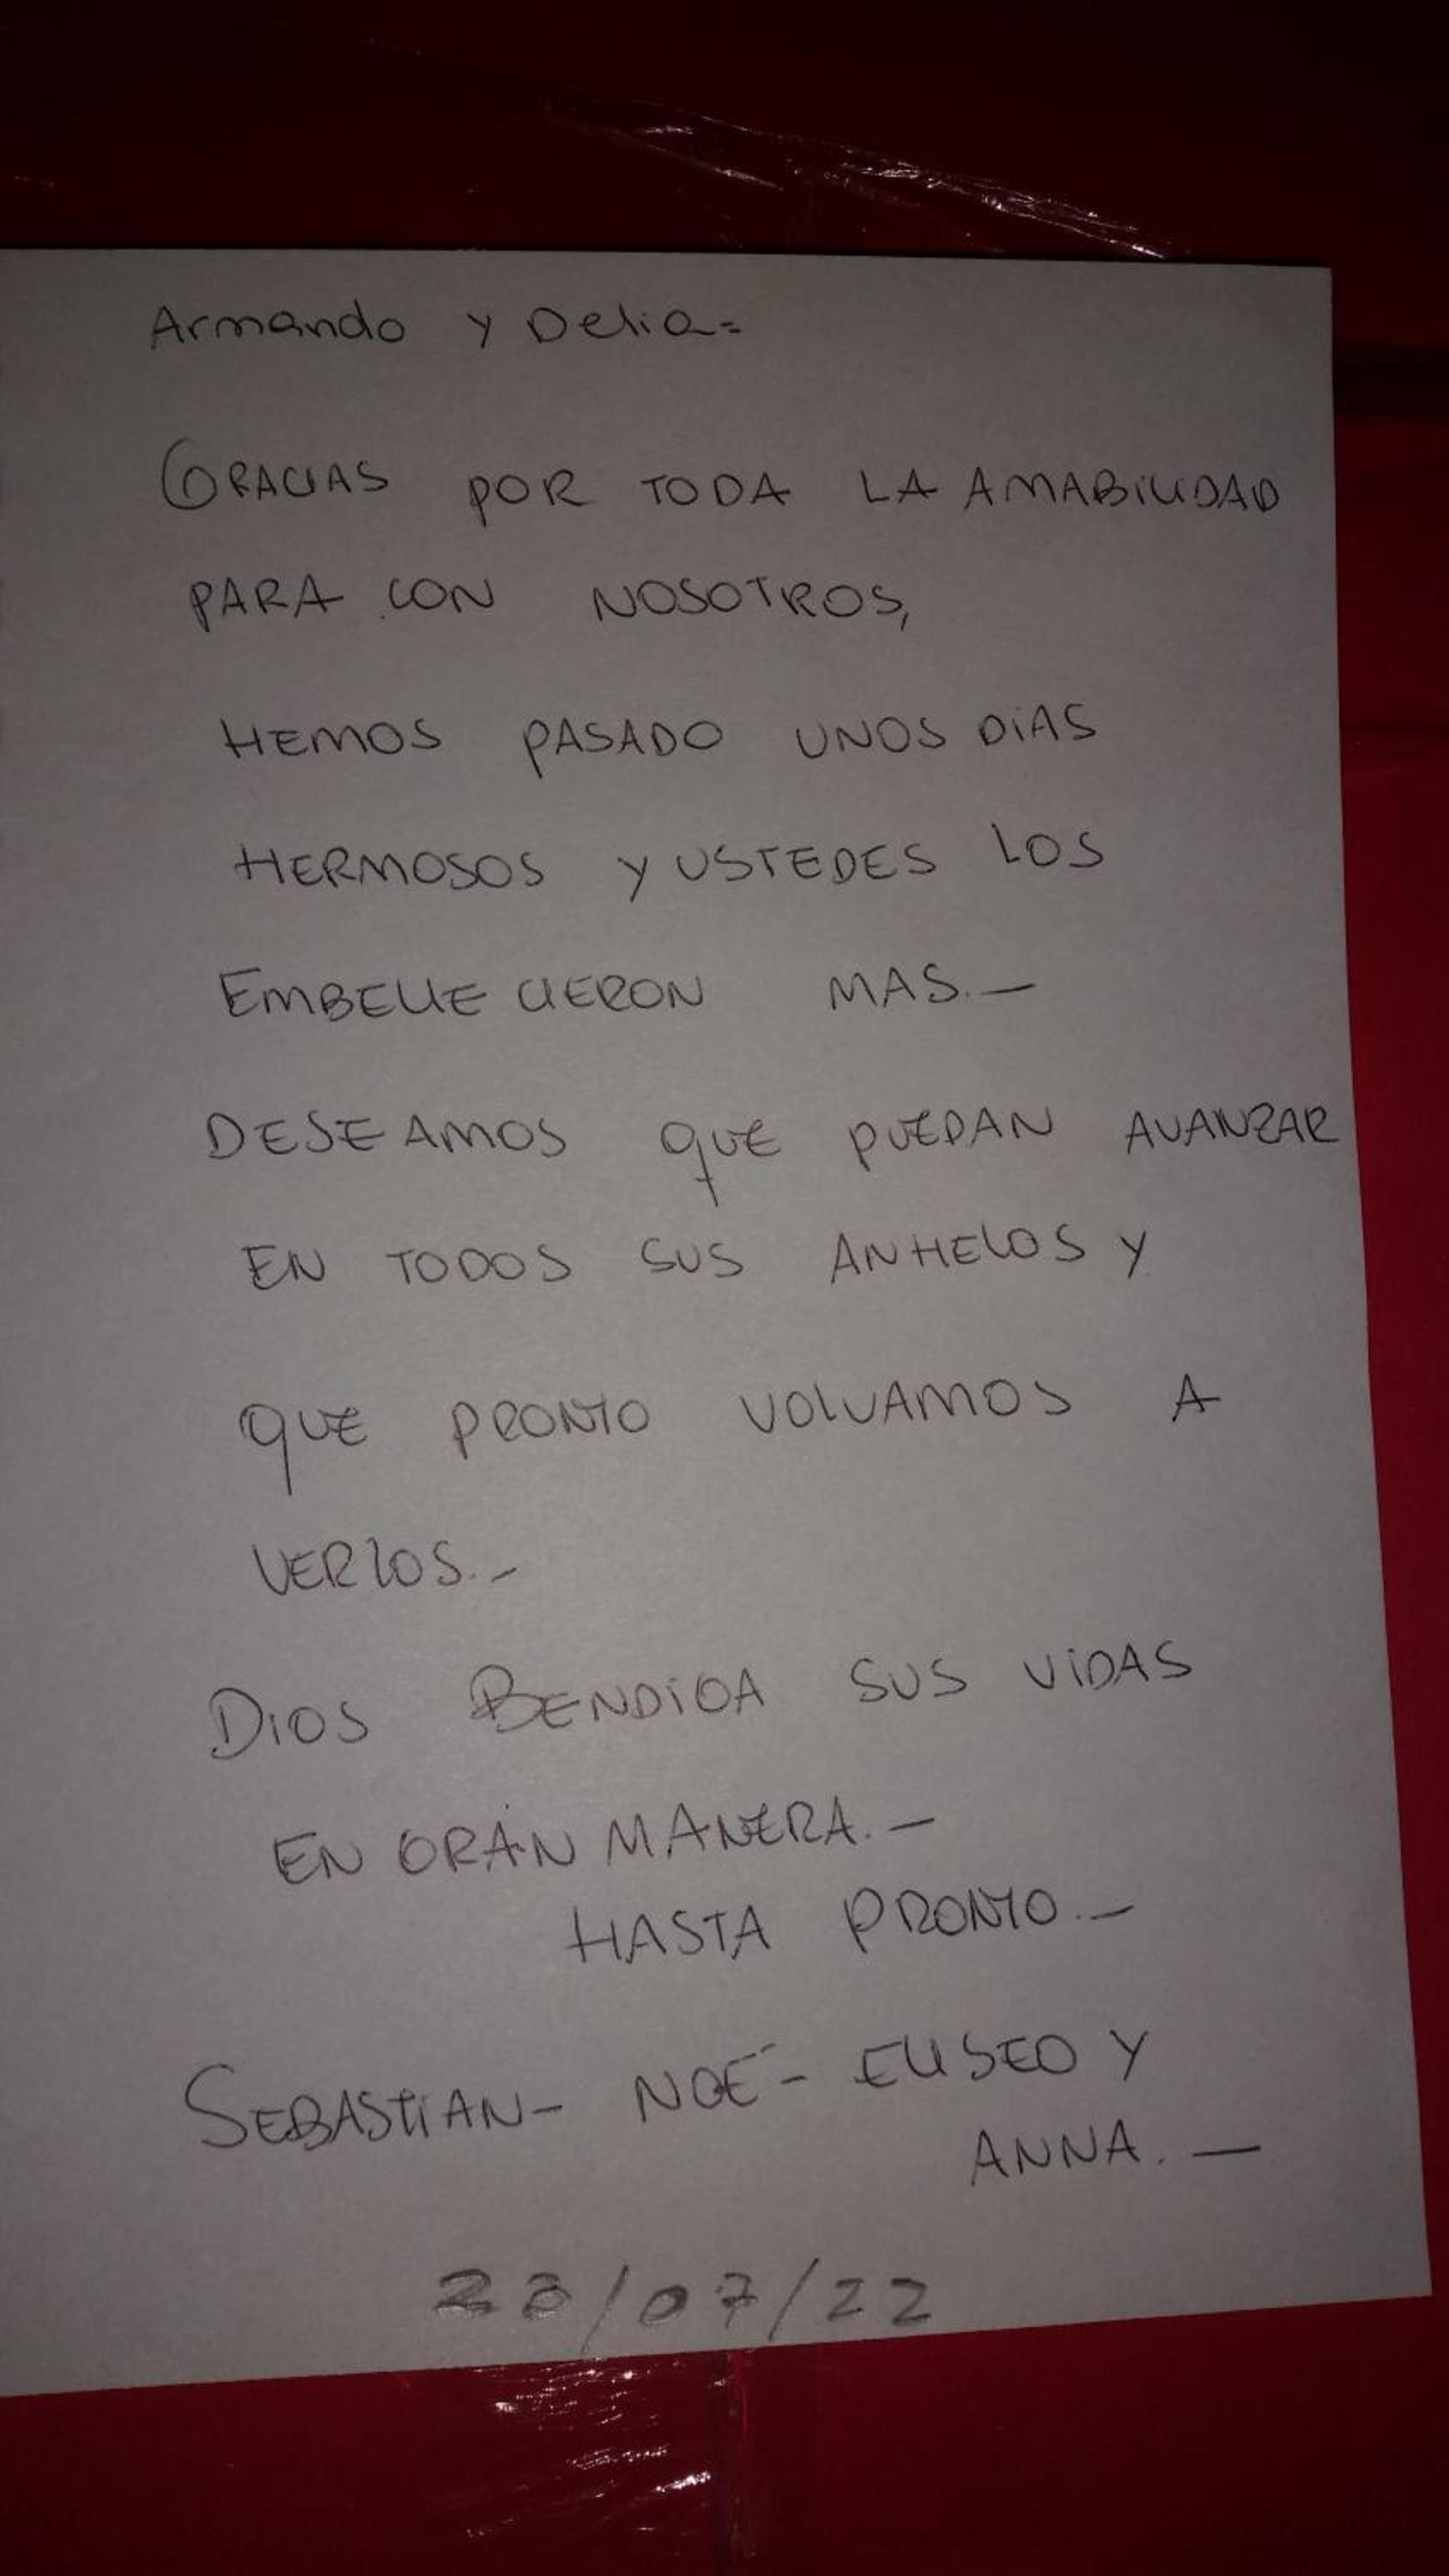 Armando y Delia=
GRACIAS POR TODA LA AMABILIDAD
PARA CON NOSOTROS,
HEMOS PASADO UNOS DIAS
HERMOSOS Y USTEDES LOS
EMBELLECIERON MAS.—
DESEAMOS QUE PUEDAN AVANZAR
EN TODOS SUS ANHELOS Y
QUE PRONTO VOLVAMOS A
VERLOS.-
DIOS BENDIGA SUS VIDAS
EN GRAN MANERA.—
HASTA PRONTO.—
SEBASTIAN- NOÉ- ELISEO Y
ANNA.—
23/07/22